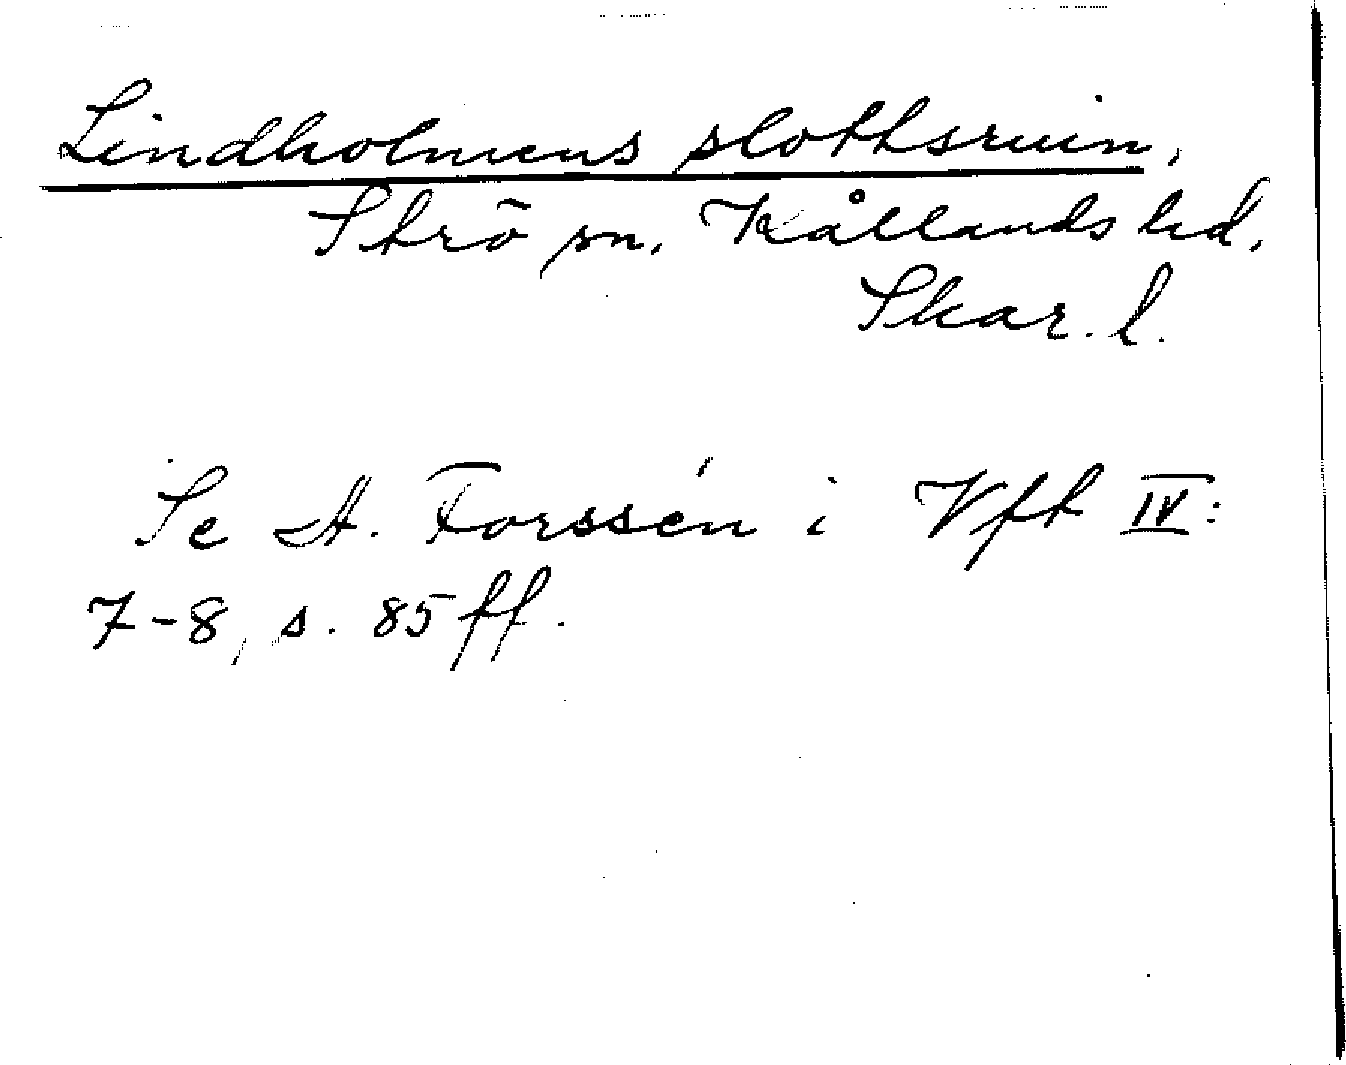 Lindholmens slottsruin,
Strö sn, Kållands hd,
Skar. l.
Se A. Forssén i Vft IV:
7-8, s. 85 ff.